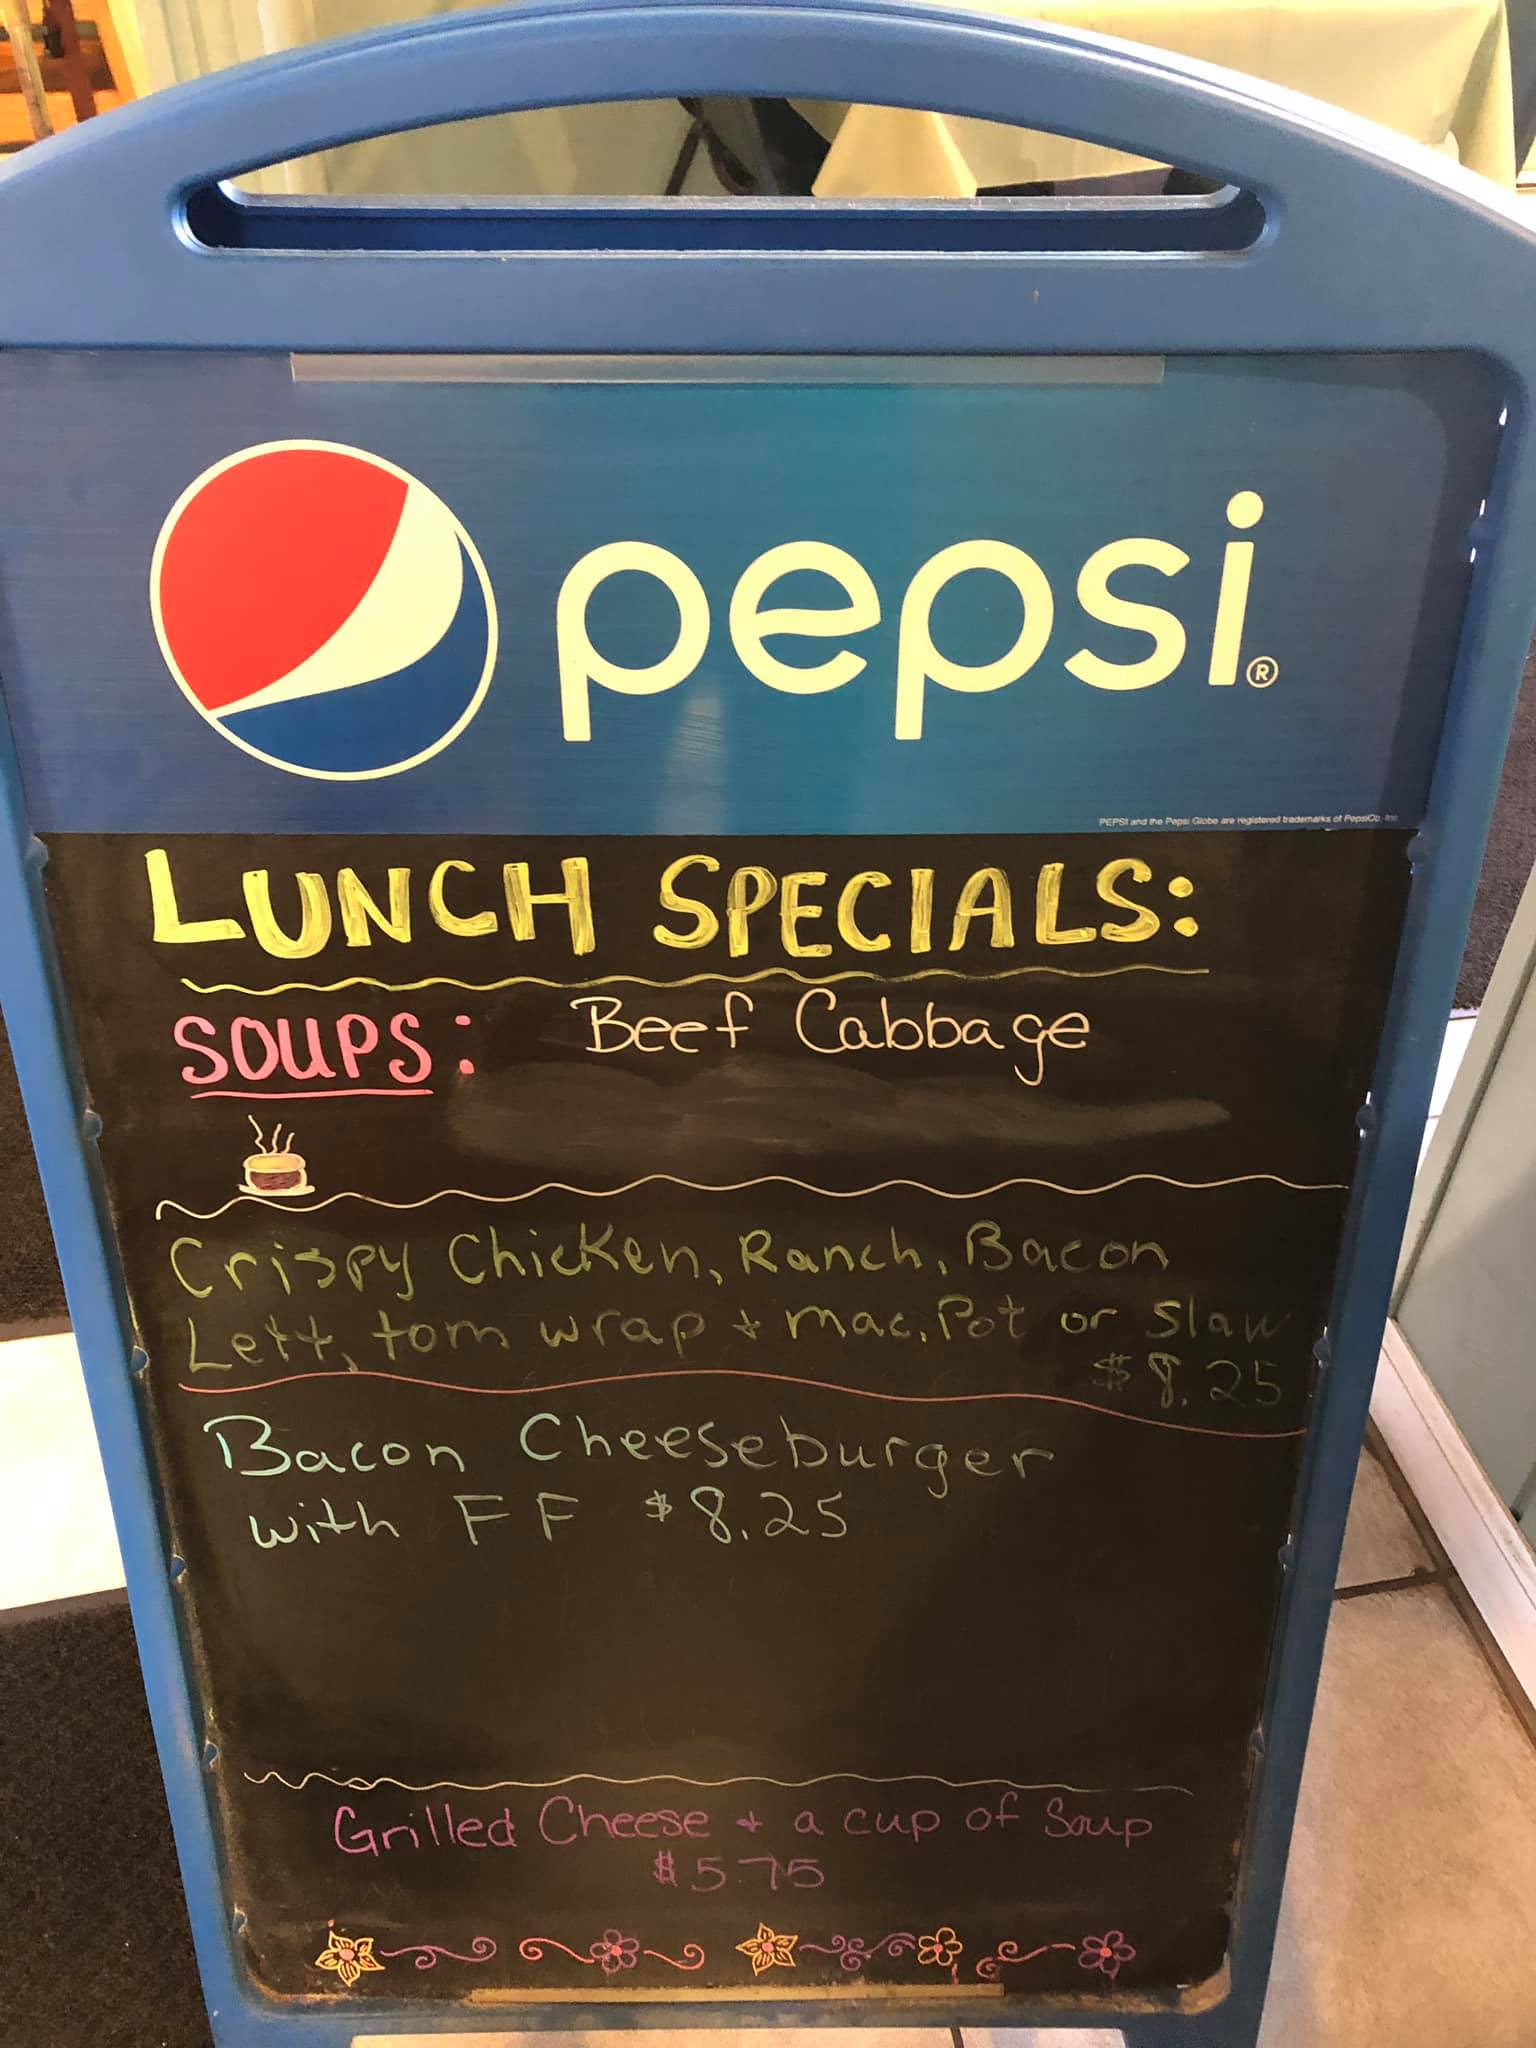 pepsi®
PEPSI and the Pepsi Globe are registered trademarks of PepsiCo, Inc
LUNCH SPECIALS:
SOUPS: Beef Cabbage
Crispy Chicken, Ranch, Bacon
Lett, tom wrap + mac. Pot or slaw
$8.25
Bacon Cheeseburger
with FF $8.25
Grilled Cheese + a cup of Soup
$5.75